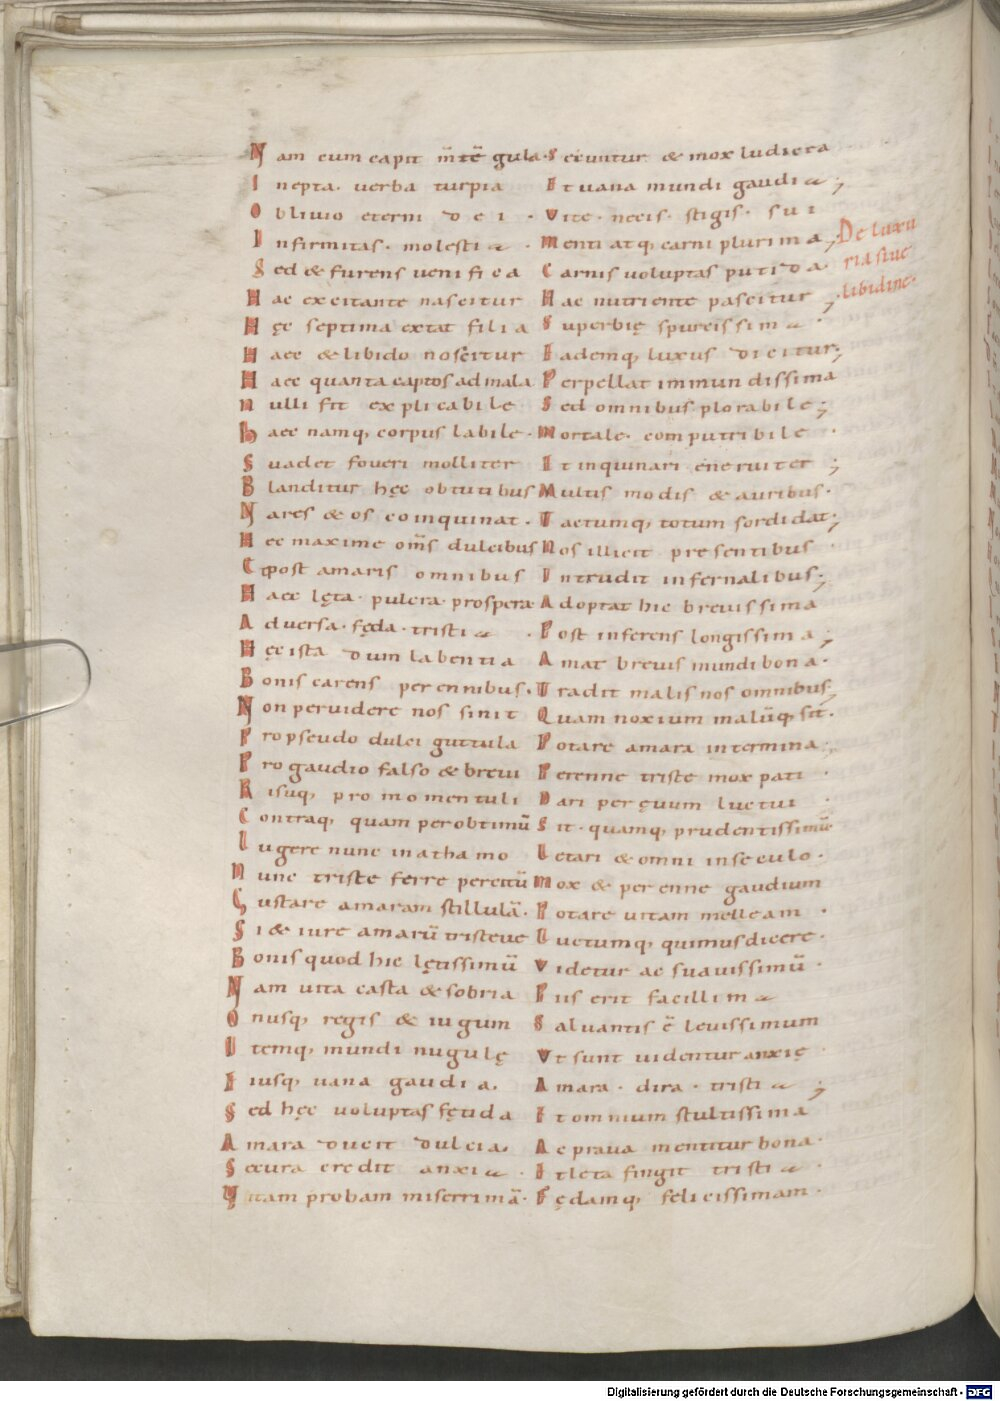 Nam cum capit m̄tē gula· Secuntur & mox ludicra
Inepta· uerba turpia Et uana mundi gaudia;
Obliuio eterni dei· Vite· necis· stigis· sui
Infirmitas· molestia· Menti atq, carni plurima;
De luxu
Sed & furens uenifica Carnis uoluptas putida·
ria siue
Hac excitante nascitur Hac nutriente pascitur;
libidine·
Hęc septima extat filia Superbię spurcissima·
Haec & libido noscitur Eademq, luxus dicitur;
Haec quanta captos ad mala Perpellat immundissima
Nulli fit explicabile· Sed omnibus plorabile;
haec namq, corpus labile· Mortale· computribile·
Suadet foueri molliter Et inquinari eneruiter;
Blanditur hęc obtutibus Multis modis & auribus·
Nares & os coinquinat· Tactumq, totum sordidat;
Hec maxime om̄s dulcibus Nos illicit presentibus
Et post amaris omnibus Intrudit infernalibus;
Haec lęta· pulcra· prospera Adoptat hic breuissima
Aduersa· fęda· tristia· Post inferens longissima;
Hęc ista dum labentia Amat breuis mundi bona·
Bonis carens perennibus· Tradit malis nos omnibus;
Non peruidere nos sinit Quam noxium malū q, sit·
Pro pseudo dulci guttula Potare amara intermina;
Pro gaudio falso & breui Perenne triste mox pati·
Risuq, pro momentuli Dari per ęuum luctui·
Contraq, quam per obtimū Sit· quamq, prudentissimū
Lugere nunc in athamo Letari & omni in seculo·
Nunc triste ferre percitū Mox & perenne gaudium
Gustare amaram stillulā· Potare uitam melleam·
Si & iure amarū tristeue Luctumq, quimus dicere·
Bonis quod hic lętissimū Videtur ac suauissimū·
Nam uita casta & sobria Piis erit facillima
Onusq, regis & iugum Saluantis ē leuissimum
Itemq, mundi nugulę Vt sunt uidentur anxię·
Eiusq, uana gaudia. Amara· dira· tristia;
Sed hęc uoluptas fętida Et omnium stultissima
Amara ducit dulcia. Ac praua mentitur bona·
Secura credit anxia· Et leta fingit tristia·
Vitam probam miserrimā· Fędamq, felicissimam·
Digitalisierung gefördert durch die Deutsche Forschungsgemeinschaft - DFG